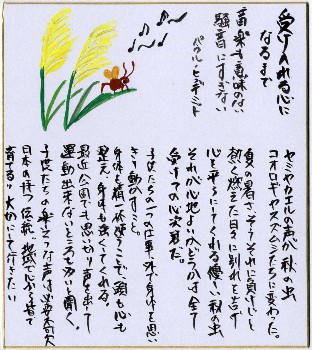 受け入れる心に
なるまで
音楽も意味のない
騒音にすぎない
パウル・ヒンデミット
セミやカエルの声が秋の虫
コオロギやスズムシたちに変わった。
夏の暑さ
熱く燃えた日々に別れを告げ
心を平らにしてくれる優しい秋の虫
それが心地よいかどうかは全て
受けての心次第だ。
子供たちの一つの仕事、それが身体を思い
きり動かすこと。
身体を精一杯使うことで、頭も心も
整え、身体も強くしてくれる。
最近公園でも思いっきり声を出して
運動出来ないところが多いと聞く。
子供たちの楽しそうな声は必要不可欠
日本の持つ伝統、地域で心から皆で
育てる、大切にして行きたい